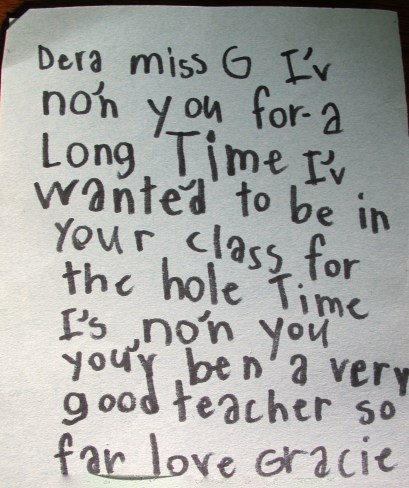 Dera miss G I'v
no'n you for-a
Long Time I'v
wante'd to be in
your class for
the hole Time
I's no'n you
you'y ben a very
good teacher so
far love Gracie